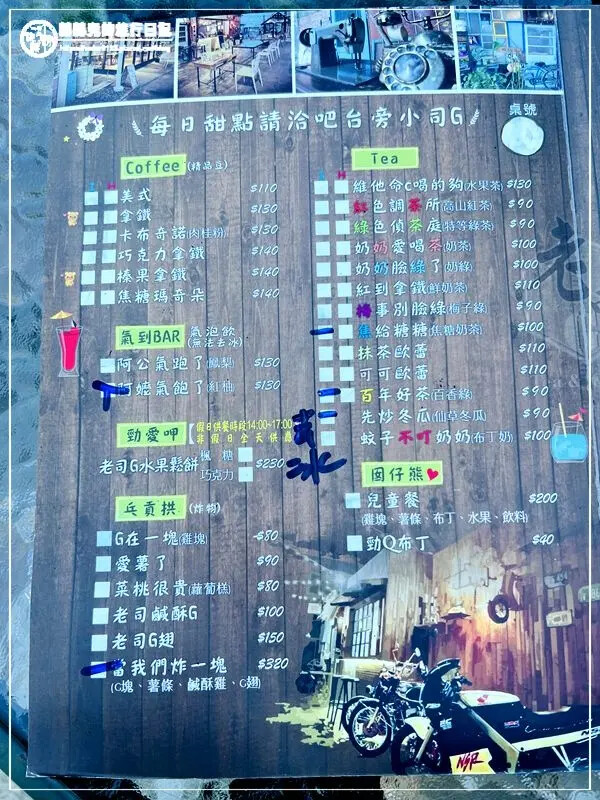 每日甜點請洽吧台旁小司G
桌號
Coffee(精品豆)
美式 $110
拿鐵 $130
卡布奇諾(肉桂粉) $130
巧克力拿鐵 $140
榛果拿鐵 $140
焦糖瑪奇朵 $140
氣到BAR 氣泡飲
(無法去冰)
阿公氣跑了(鳳梨) $130
阿嬤氣飽了(紅柚) $130
勁愛呷 假日供餐時段14:00~17:00
非假日全天供應
老司G水果鬆餅 楓糖
巧克力 $230
乒貢拱 (炸物)
G在一塊(雞塊) $80
愛薯了 $90
菜桃很貴(蘿蔔糕) $80
老司鹹酥G $100
老司G翅 $150
當我們炸一塊 $320
(G塊、薯條、鹹酥雞、G翅)
Tea
維他命c喝的夠(水果茶) $130
紅色調茶所(高山紅茶) $90
綠色偵茶庭(特等綠茶) $90
奶奶愛喝茶(奶茶) $100
奶奶臉綠了(奶綠) $100
紅到拿鐵(鮮奶茶) $110
梅事別臉綠(梅子綠) $90
焦給糖糖(焦糖奶茶) $100
抹茶歐蕾 $110
可可歐蕾 $110
百年好茶(百香綠) $90
先炒冬瓜(仙草冬瓜) $90
蚊子不叮奶奶(布丁奶) $100
囡仔熊
兒童餐 $200
(雞塊、薯條、布丁、水果、飲料)
勁Q布丁 $40
NSR